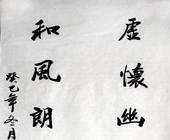 虛懷幽
和風朗
癸巳年冬月